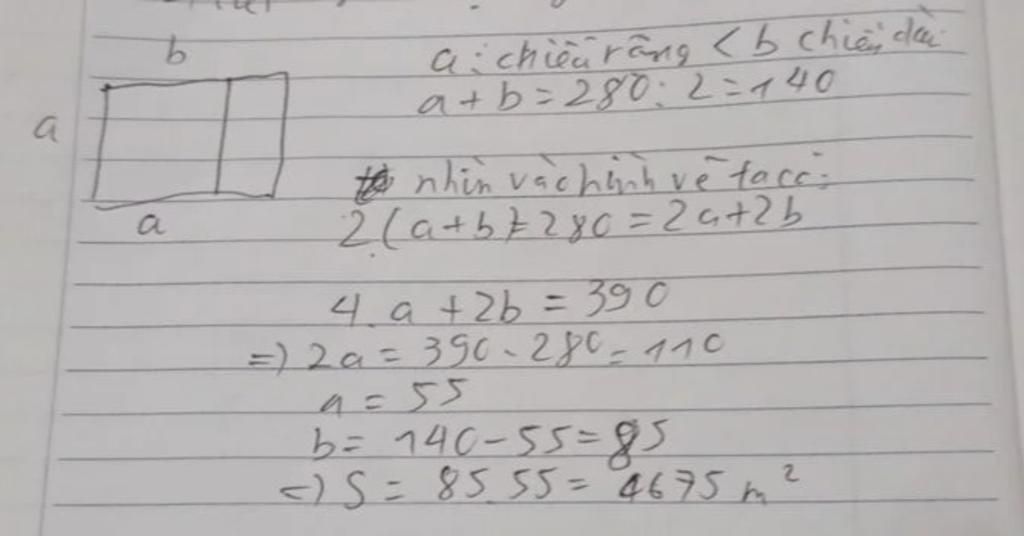 b
a : chiều rộng < b chiều dài
a + b = 280 : 2 = 140
a
nhìn vào hình vẽ ta có :
a
2 (a + b) = 280 = 2a + 2b
4. a + 2b = 390
=) 2a = 390 - 280 = 110
a = 55
b = 140 - 55 = 85
=) S = 85.55 = 4675 m²